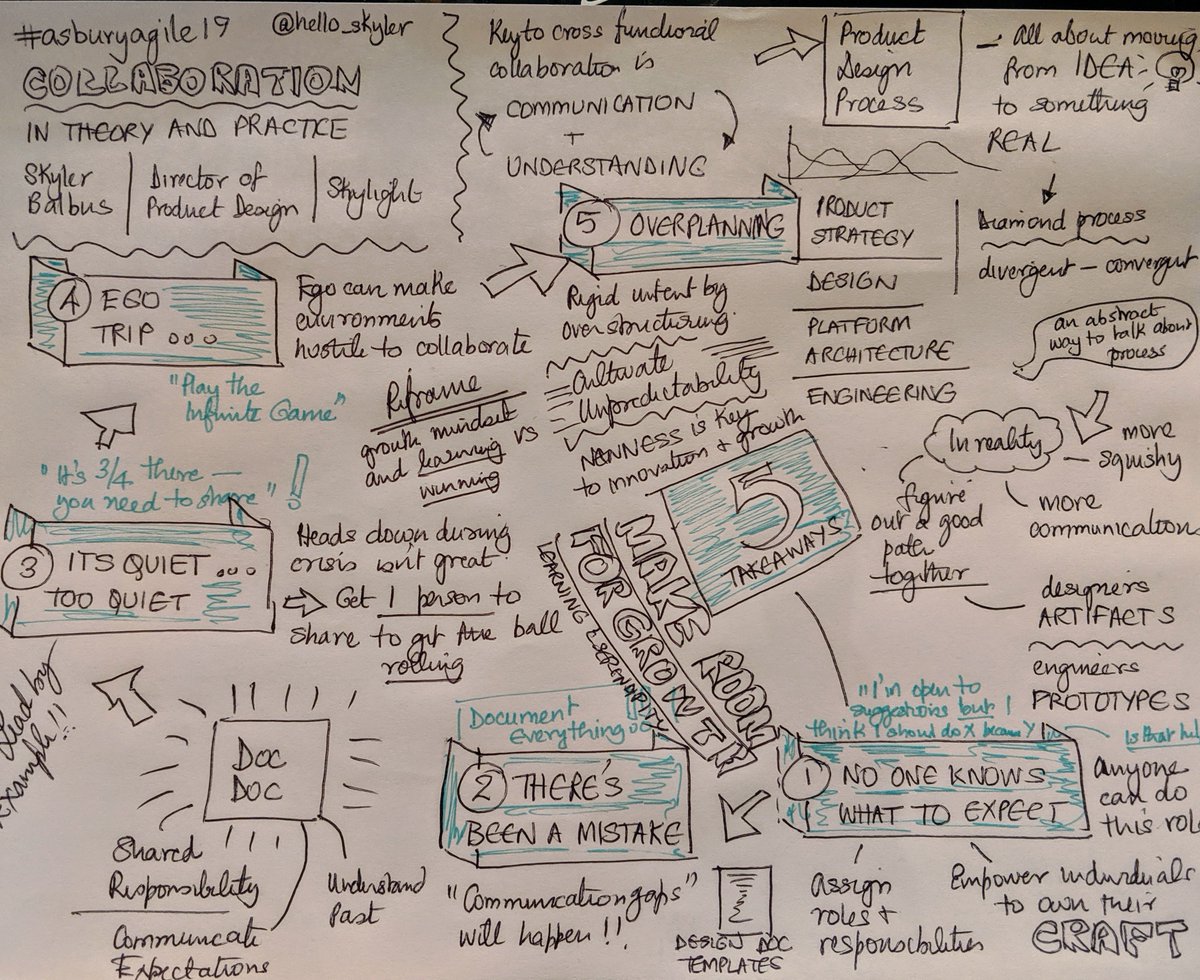 #asburyagile19
@hello_skyler
COLLABORATION
IN THEORY AND PRACTICE
Skyler
Balbus
Director of
Product Design
Skylight
Key to cross functional
collaboration is
COMMUNICATION
+
UNDERSTANDING
Product
Design
Process
- All about moving
from IDEA
to something
REAL
Diamond process
divergent - convergent
an abstract
way to talk about
process
PRODUCT
STRATEGY
DESIGN
PLATFORM
ARCHITECTURE
ENGINEERING
In reality
more
squishy
more
communication
figure
out a good
path
together
designers
ARTIFACTS
engineers
PROTOTYPES
5
TAKEAWAYS
MAKE ROOM
FOR GROWTH
LEARNING & SERENDIPITY
"I'm open to
suggestions but I
think I should do X because Y
is that
1 NO ONE KNOWS
WHAT TO EXPECT
anyone
can do
this role
Assign
roles +
responsibilities
Empower individuals
to own their
CRAFT
DESIGN DOC
TEMPLATES
Document
Everything
2 THERE'S
BEEN A MISTAKE
"Communication gaps"
will happen!!
DOC
DOC
Shared
Responsibility
Communicate
Expectations
Understand
Past
Lead by
Example!!
"It's 3/4 there -
you need to share"!
3 ITS QUIET ...
TOO QUIET
Heads down during
crisis isn't great
Get 1 person to
share to get the ball
rolling
4 EGO
TRIP ...
Ego can make
environments
hostile to collaborate
"Play the
Infinite Game"
Reframe
growth mindset
and learning vs
winning
5 OVERPLANNING
Rigid intent by
overstructuring
Cultivate
Unpredictability
NEWNESS is key
to innovation + growth